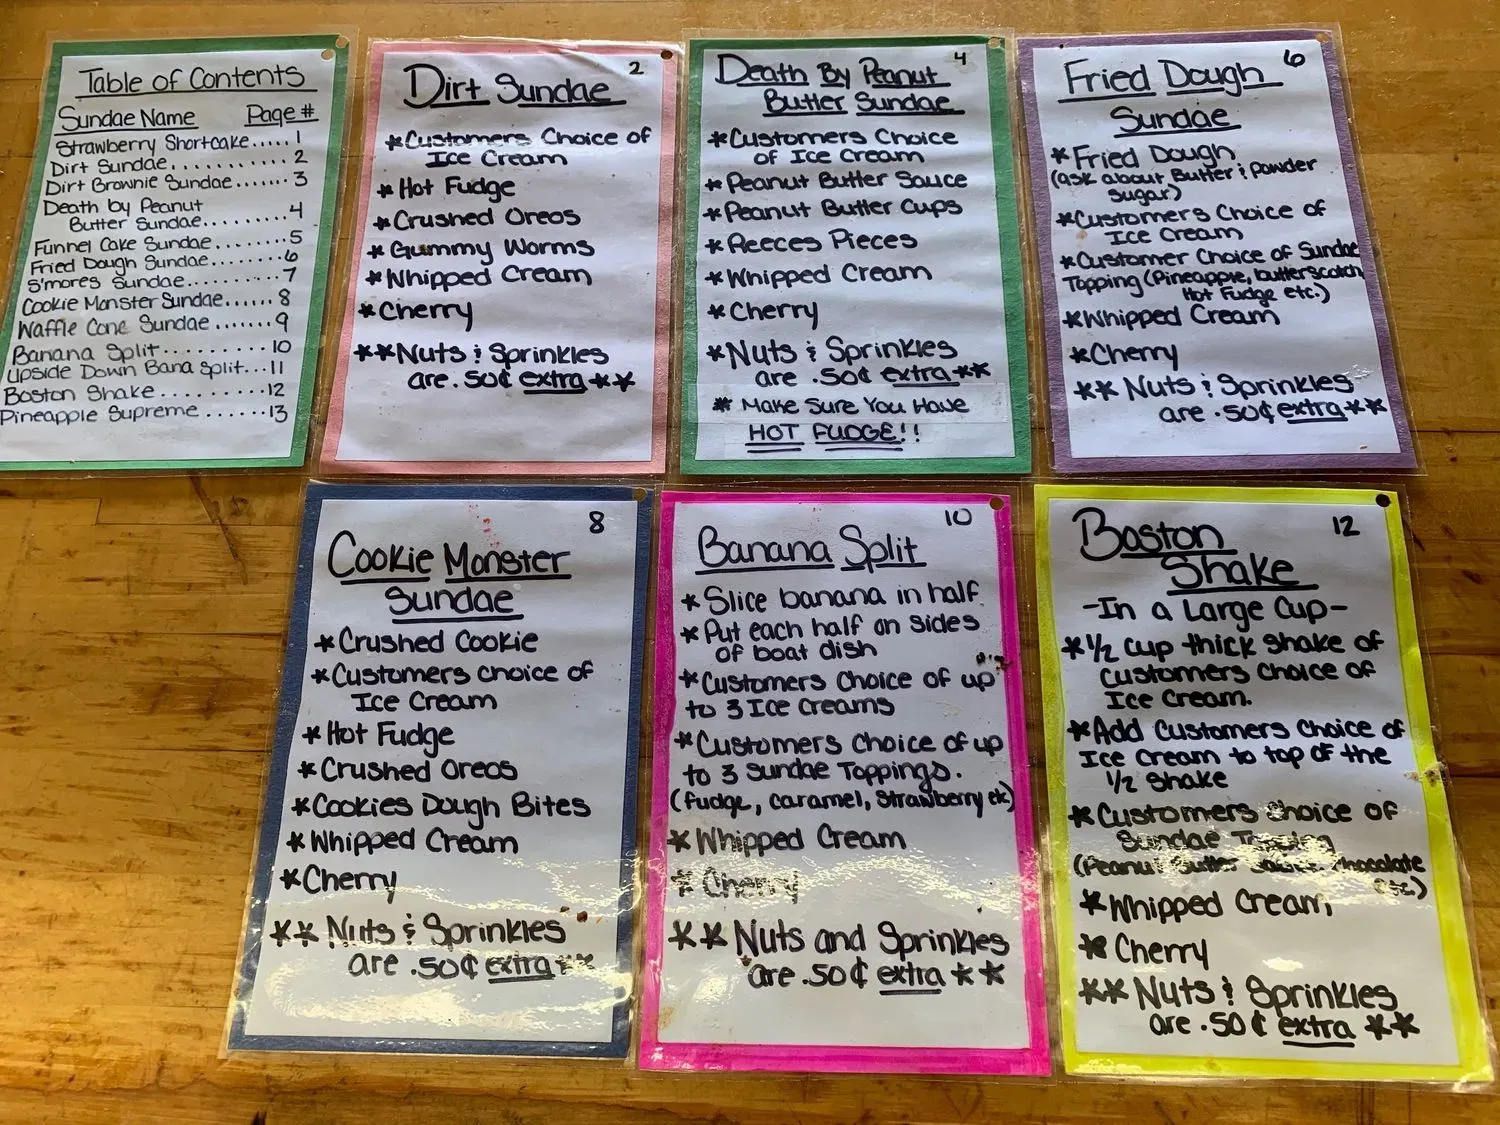 Table of Contents
Sundae Name Page #
Strawberry Shortcake..... 1
Dirt Sundae............ 2
Dirt Brownie Sundae....... 3
Death by Peanut
Butter Sundae......... 4
Funnel Cake Sundae........ 5
Fried Dough Sundae........ 6
S'mores Sundae......... 7
Cookie Monster Sundae...... 8
Waffle Cone Sundae ....... 9
Banana Split........... 10
Upside Down Bana Split... 11
Boston Shake .......... 12
Pineapple Supreme ...... 13
2
Dirt Sundae
*Customers Choice of
Ice Cream
*Hot Fudge
*Crushed Oreos
*Gummy Worms
*Whipped Cream
*Cherry
**Nuts & Sprinkles
are .50¢ extra **
4
Death By Peanut
Butter Sundae
*Customers Choice
of Ice Cream
*Peanut Butter Sauce
*Peanut Butter Cups
*Reeces Pieces
*Whipped Cream
*Cherry
*Nuts & Sprinkles
are .50¢ extra **
* Make Sure You Have
HOT FUDGE!!
6
Fried Dough
Sundae
*Fried Dough
(ask about Butter & powder
sugar)
*Customers Choice of
Ice Cream
*Customer Choice of Sundae
Topping (Pineapple, butterscotch,
Hot Fudge etc.)
*Whipped Cream
*Cherry
** Nuts & Sprinkles
are .50¢ extra **
8
Cookie Monster
Sundae
*Crushed Cookie
*Customers choice of
Ice Cream
*Hot Fudge
*Crushed Oreos
*Cookies Dough Bites
*Whipped Cream
*Cherry
** Nuts & Sprinkles
are .50¢ extra **
10
Banana Split
*Slice banana in half
*Put each half on sides
of boat dish
*Customers Choice of up
to 3 Ice Creams
*Customers Choice of up
to 3 Sundae Toppings.
(fudge, caramel, strawberry etc)
*Whipped Cream
*Cherry
** Nuts and Sprinkles
are .50¢ extra **
12
Boston
Shake
-In a Large Cup-
*1/2 cup thick shake of
customers choice of
Ice Cream.
*Add Customers Choice of
Ice Cream to top of the
1/2 Shake
*Customers Choice of
Sundae Topping
(Peanut Butter Sauce, Chocolate
etc.)
*Whipped Cream
*Cherry
** Nuts & Sprinkles
are .50¢ extra **